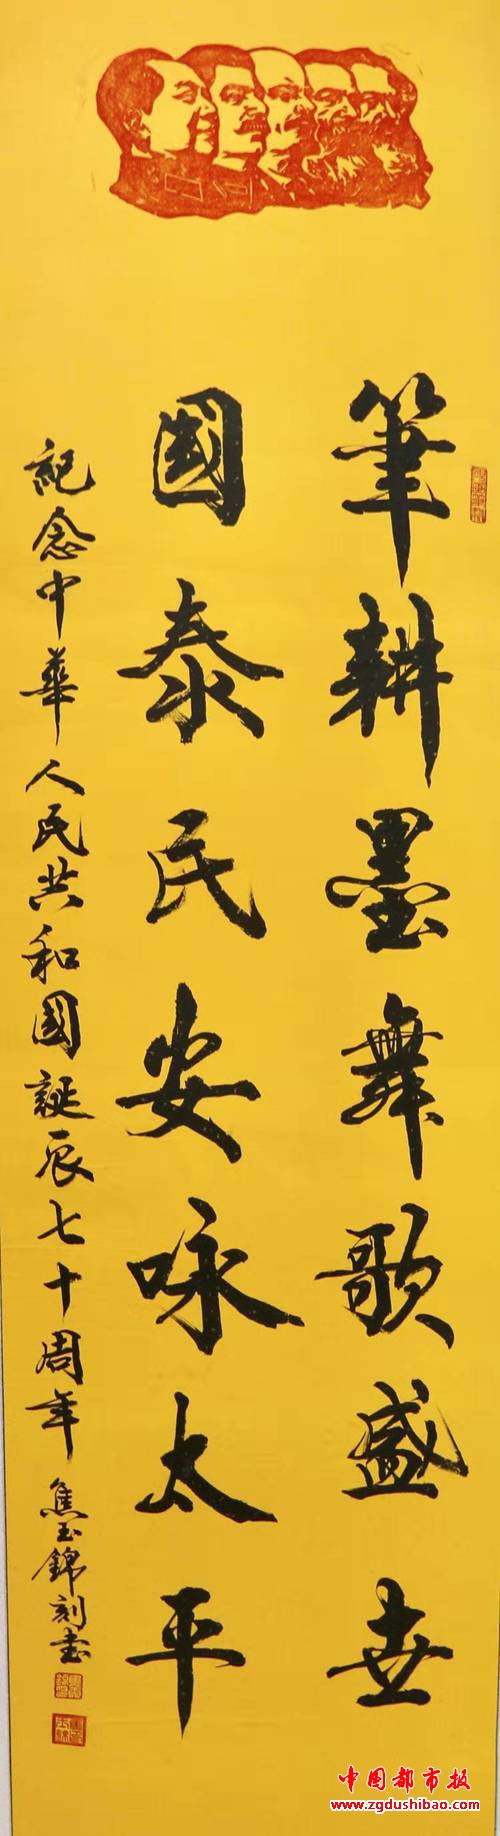 筆耕墨舞歌盛世
國泰民安咏太平
記念中華人民共和國誕辰七十周年 焦玉錦刻書
中国都市报
www.zgdushibao.com